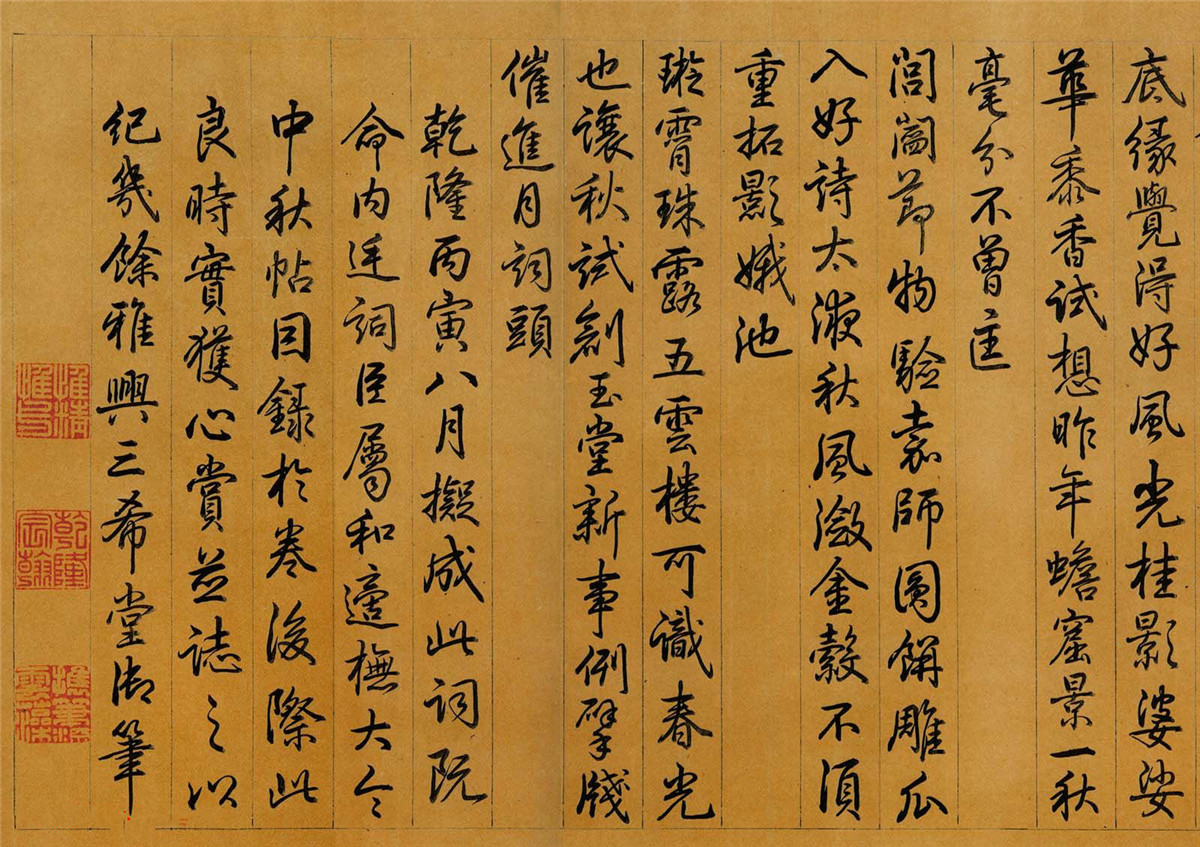 底緣覺得好風光桂影婆娑
華黍香試想昨年蟾窟景一秋
毫分不曾
閶闔節物驗京師圓餅雕瓜
入好詩太液秋風瀲金縠不須
重拓影娥池
璇霄珠露五雲樓可識春光
也讓秋試創玉堂新事例擘牋
催進月詞頭
乾隆丙寅八月擬成此詞既
命內廷詞臣屬和適撫大令
中秋帖因錄於卷後際此
良時實獲心賞並誌之以
紀幾餘雅興三希堂御筆
惟精惟一
乾隆宸翰